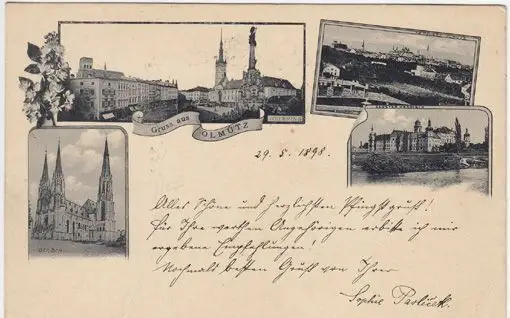 Gruss aus
OLMÜTZ
29. 5. 1898.
Alles Schöne und herzlichsten Pfingstgruß!
Für Ihre werthen Angehörigen erbitte ich mir
ergebene Empfehlungen!
Nochmals besten Gruß von Ihrer
Sophie Pavliček.